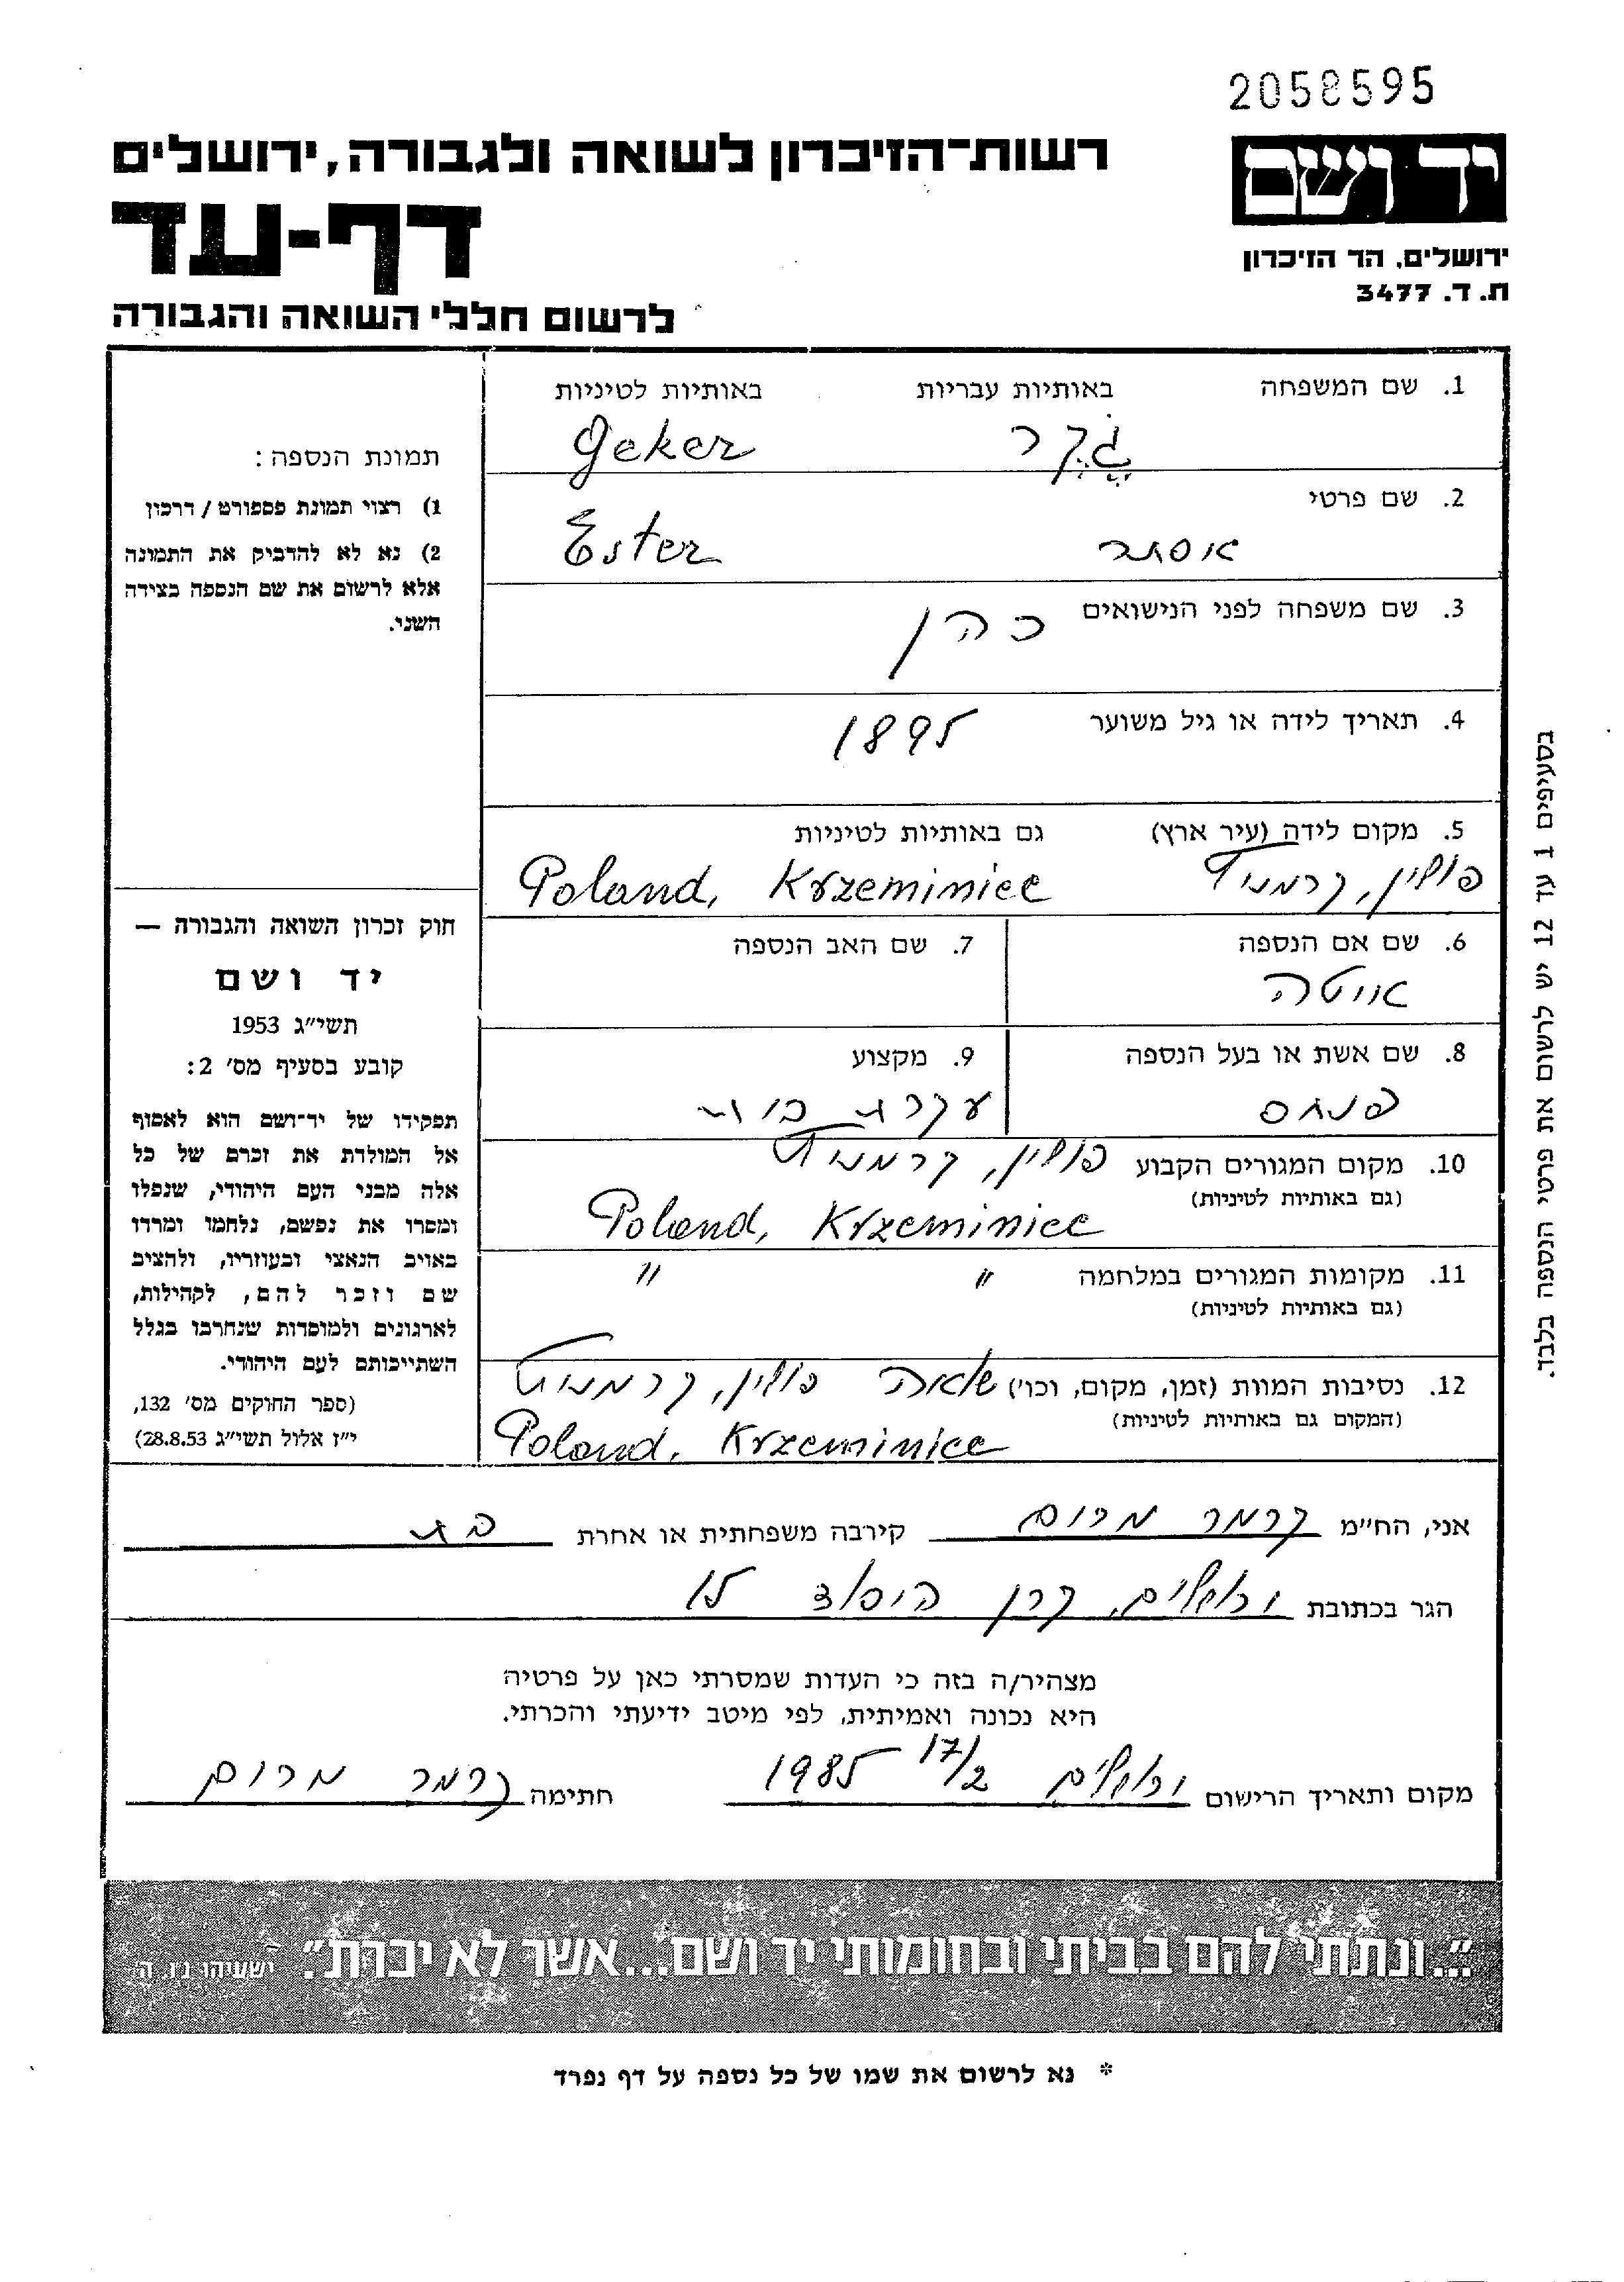 2058595
יד ושם
ירושלים, הר הזיכרון
ת. ד. 3477
רשות־הזיכרון לשואה ולגבורה, ירושלים
דף-עד
לרשום חללי השואה והגבורה
1. שם המשפחה באותיות עבריות באותיות לטיניות
גֶקֶר Geker
2. שם פרטי
אסתר Ester
3. שם משפחה לפני הנישואים כהן
4. תאריך לידה או גיל משוער 1895
5. מקום לידה (עיר ארץ) גם באותיות לטיניות
פולין, קרמניץ Poland, Krzeminiec
6. שם אם הנספה 7. שם האב הנספה
אויטה
8. שם אשת או בעל הנספה 9. מקצוע
פנחס עקרת בית
10. מקום המגורים הקבוע פולין, קרמניץ
(גם באותיות לטיניות) Poland, Krzeminiec
11. מקומות המגורים במלחמה " "
(גם באותיות לטיניות)
12. נסיבות המוות (זמן, מקום, וכו') שואה פולין, קרמניץ
(המקום גם באותיות לטיניות) Poland, Krzeminiec
תמונת הנספה:
1) רצוי תמונת פספורט / דרכון
2) נא לא להדביק את התמונה
אלא לרשום את שם הנספה בצידה
השני.
חוק זכרון השואה והגבורה —
יד ושם
תשי"ג 1953
קובע בסעיף מס' 2:
תפקידו של יד־ושם הוא לאסוף
אל המולדת את זכרם של כל
אלה מבני העם היהודי, שנפלו
ומסרו את נפשם, נלחמו ומרדו
באויב הנאצי ובעוזריו, ולהציב
שם וזכר להם, לקהילות,
לארגונים ולמוסדות שנחרבו בגלל
השתייכותם לעם היהודי.
(ספר החוקים מס' 132,
י"ז אלול תשי"ג 28.8.53)
בסעיפים 1 עד 12 יש לרשום את פרטי הנספה בלבד.
אני, הח"מ קרמר מרים קירבה משפחתית או אחרת בת
הגר בכתובת ירושלים, קרן היסוד 15
מצהיר/ה בזה כי העדות שמסרתי כאן על פרטיה
היא נכונה ואמיתית, לפי מיטב ידיעתי והכרתי.
מקום ותאריך הרישום ירושלים 17/2 1985 חתימה קרמר מרים
"...ונתתי להם בביתי ובחומותי יד ושם...אשר לא יכרת". ישעיהו נו, ה'
* נא לרשום את שמו של כל נספה על דף נפרד